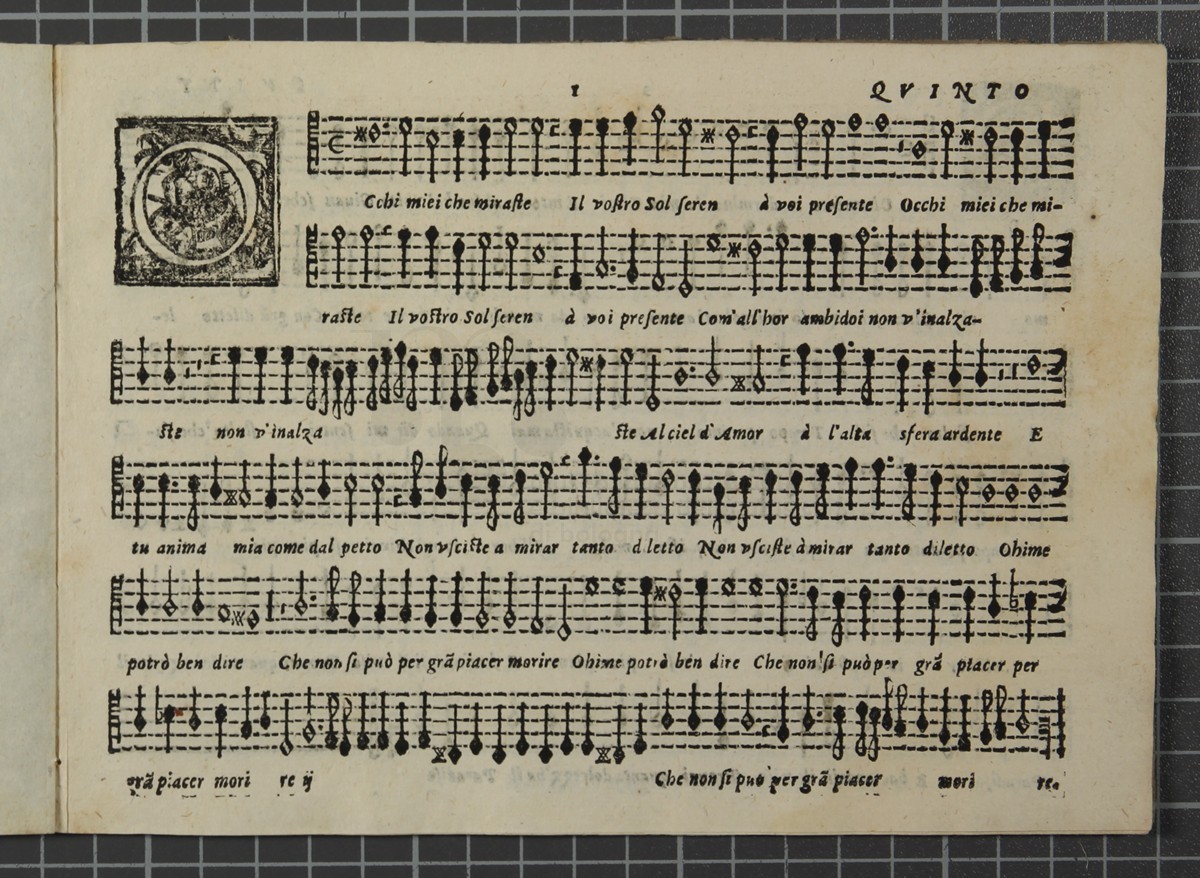 1 QVINTO
O
Cchi miei che miraſte Il voſtro Sol ſeren à voi preſente Occhi miei che mi-
raſte Il voſtro Sol ſeren à voi preſente Com'all'hor ambidoi non v'inalza-
ſte non v'inalza ſte Al ciel d'Amor à l'alta sfera ardente E
tu anima mia come dal petto Non vſciſte a mirar tanto d letto Non vſciſte à mirar tanto diletto Ohime
potrò ben dire Che non ſi può per grã piacer morire Ohime potrò ben dire Che non ſi può per grã piacer per
grã piacer mori re ij Che non ſi può per grã piacer mori re.